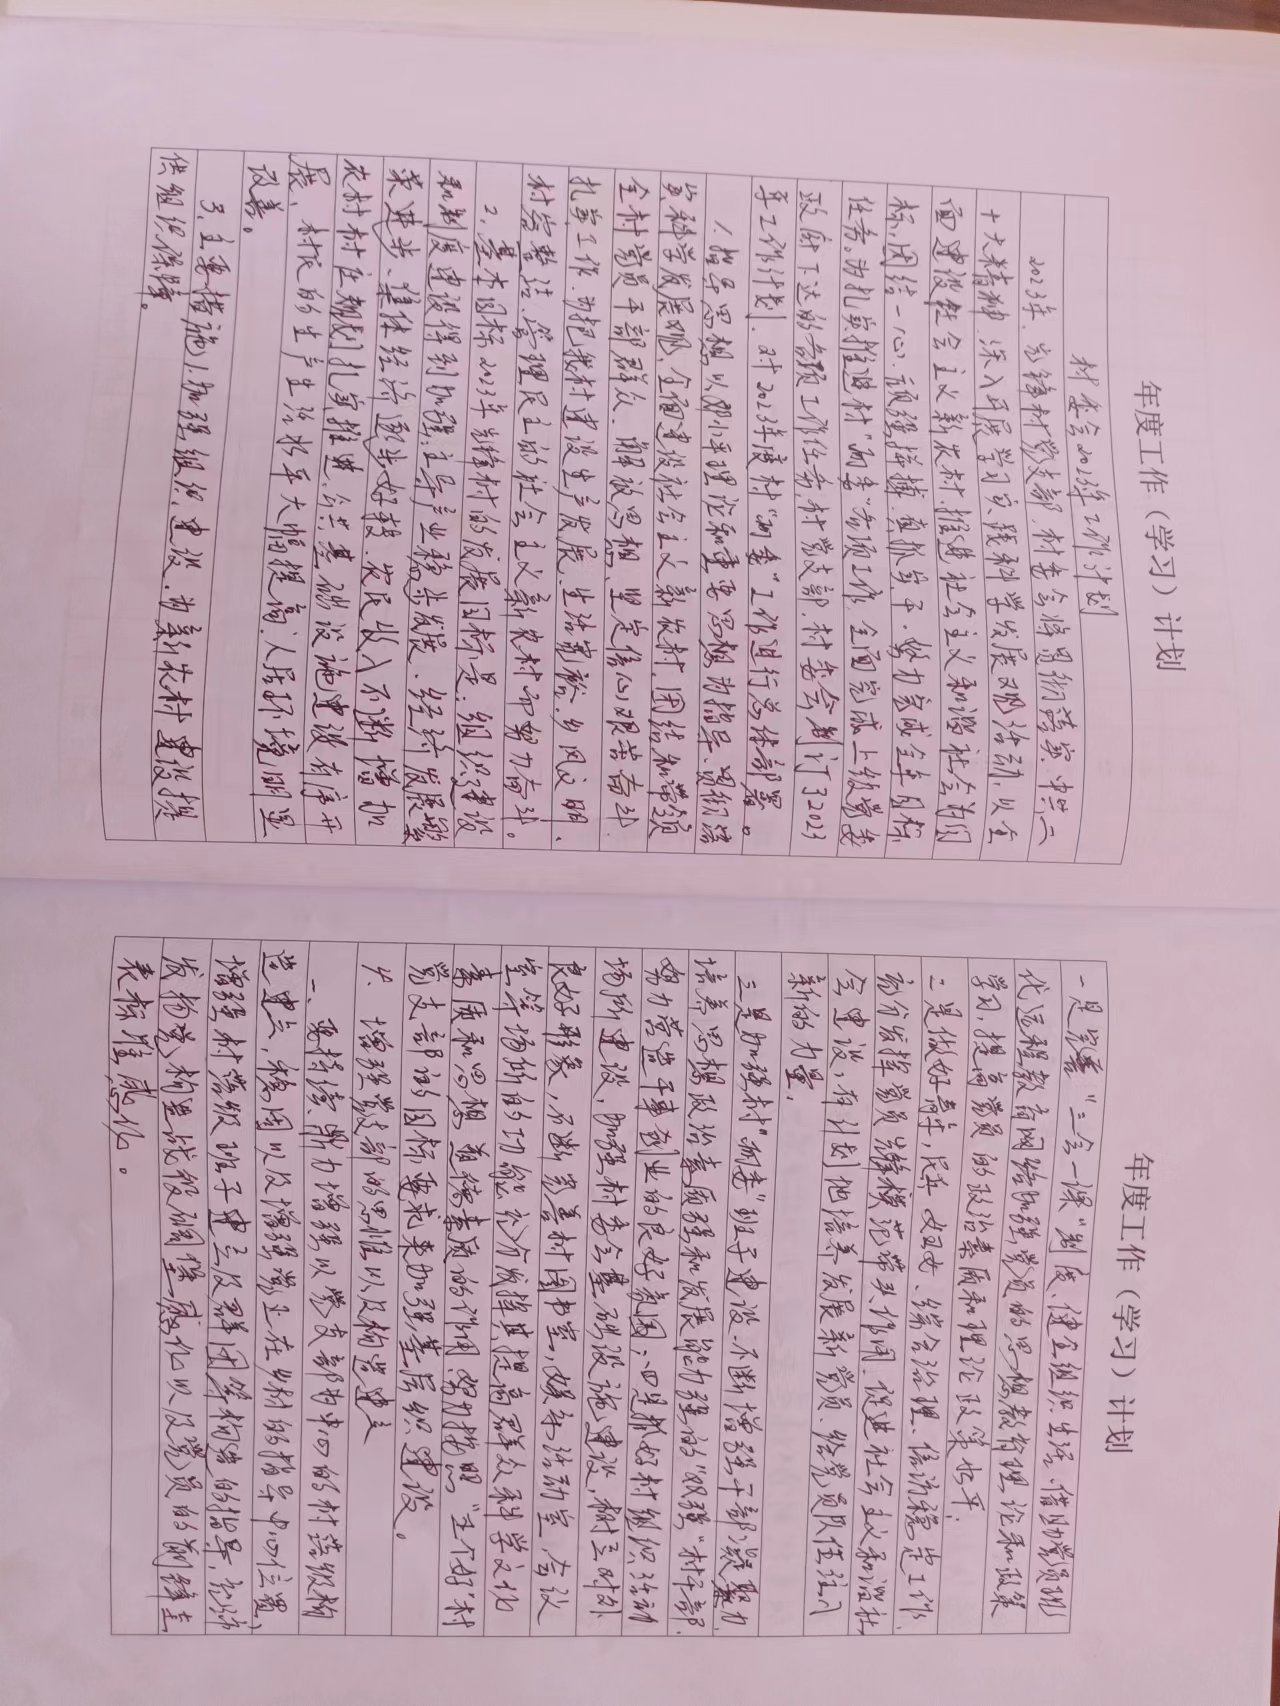 年度工作（学习）计划
村委会2023年工作计划
2023年，宗锋村党支部、村委会将贯彻落实中共二
十大精神，深入开展学习实践科学发展观活动，以全
面建设社会主义新农村，推进社会主义和谐社会为目
标，团结一心、顽强拼搏、真抓实干，努力完成全年目标
任务。为扎实推进村“两委”各项工作，全面完成上级党委
政府下达的各项工作任务，村党支部、村委会制订了2023
年工作计划，对2023年度村“两委”工作进行总体部署。
1、指导思想，以邓小平理论和重要思想为指导，贯彻落
实科学发展观，全面建设社会主义新农村，团结和带领
全村党员干部群众，解放思想、坚定信心、艰苦奋斗、
扎实工作，为把我村建设生产发展、生活宽裕、乡风文明、
村容整洁、管理民主的社会主义新农村而努力奋斗。
2、基本目标 2023年 村的发展目标是：组织建设
和制度建设得到加强，主导产业稳步发展、经济发展繁
荣进步、集体经济逐步好转、农民收入不断增加
农村村庄规划扎实推进、公共基础设施建设有序开
展，村民的生产生活水平大幅提高，人居环境明显
改善。
3、主要措施 1、加强组织建设，为新农村建设提
供组织保障。
年度工作（学习）计划
一是完善“三会一课”制度、健全组织生活，借助党员现
代远程教育网络加强党员的思想教育理论和政策
学习，提高党员的政治素质和理论政策水平；
二是做好青年，民兵、妇女、综合治理、信访稳定工作，
充分发挥党员先锋模范带头作用，促进社会主义和谐社
会建设，有计划地培养发展新党员、给党员队伍注入
新的力量，
三是加强村“两委”班子建设，不断增强干部凝聚力，
培养思想政治素质强和发展能力强的“双强”村干部，
努力营造干事创业的良好氛围；四是抓好村组织活动
场所建设，加强村委会基础设施建设，树立对外
良好形象，不断完善村图书室，娱乐活动室，会议
室等场所的功能，充分发挥其提高群众科学文化
素质和思想道德素质的作用，努力按照“五个好村
党支部的目标要求来加强基层组织建设。
4、增强党支部的思惟以及构造建立
一、要持续鼎力增强以党支部为中心的村落级构
造建立，稳固以及增强党正在乡村的指导中心位置，
增强村落级班子建立及群团等构造的指导，充沛
发扬党构造战役碉堡感化以及党员的前锋圭
表标准感化。